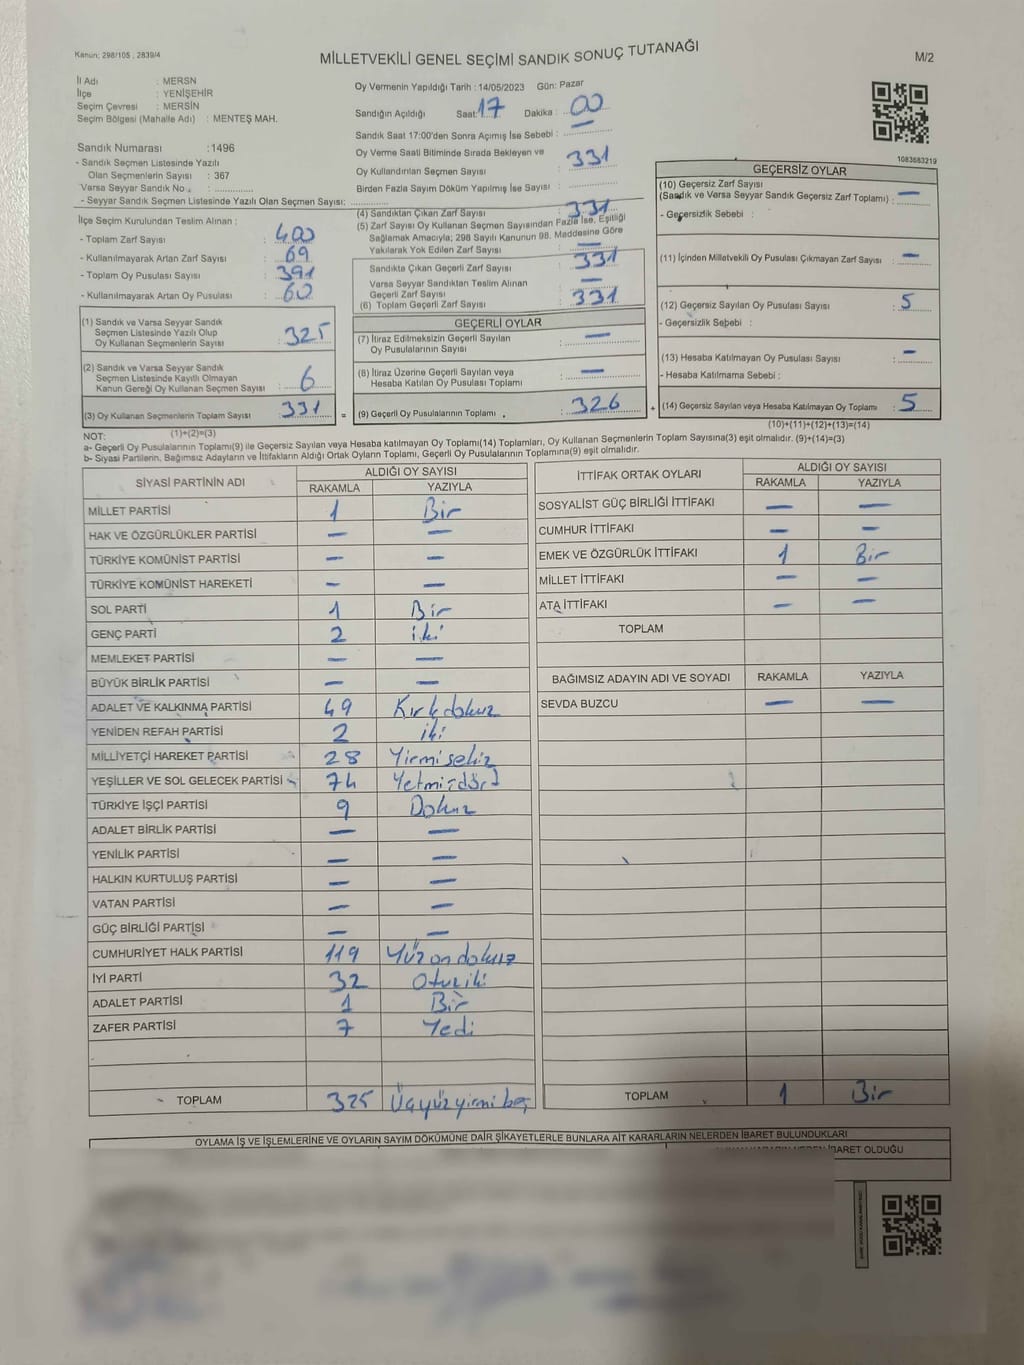 Kanun: 298/105 , 2839/4
MİLLETVEKİLİ GENEL SEÇİMİ SANDIK SONUÇ TUTANAĞI
M/2
İl Adı : MERSN
İlçe : YENİŞEHİR
Seçim Çevresi : MERSİN
Seçim Bölgesi (Mahalle Adı) : MENTEŞ MAH.
Sandık Numarası : 1496
- Sandık Seçmen Listesinde Yazılı
Olan Seçmenlerin Sayısı : 367
Varsa Seyyar Sandık No : ..............
- Seyyar Sandık Seçmen Listesinde Yazılı Olan Seçmen Sayısı: ..............
Oy Vermenin Yapıldığı Tarih : 14/05/2023 Gün: Pazar
Sandığın Açıldığı Saat: 17 Dakika : 00
Sandık Saat 17:00'den Sonra Açımış İse Sebebi : —
Oy Verme Saati Bitiminde Sırada Bekleyen ve
Oy Kullandırılan Seçmen Sayısı : 331
Birden Fazla Sayım Döküm Yapılmış İse Sayısı : ..............
1083683219
İlçe Seçim Kurulundan Teslim Alınan :
- Toplam Zarf Sayısı : 400
- Kullanılmayarak Artan Zarf Sayısı : 69
- Toplam Oy Pusulası Sayısı : 391
- Kullanılmayarak Artan Oy Pusulası : 60
(1) Sandık ve Varsa Seyyar Sandık
Seçmen Listesinde Yazılı Olup
Oy Kullanan Seçmenlerin Sayısı : 325
(2) Sandık ve Varsa Seyyar Sandık
Seçmen Listesinde Kayıtlı Olmayan
Kanun Gereği Oy Kullanan Seçmen Sayısı : 6
(3) Oy Kullanan Seçmenlerin Toplam Sayısı : 331 =
(1)+(2)=(3)
(4) Sandıktan Çıkan Zarf Sayısı : 331
(5) Zarf Sayısı Oy Kullanan Seçmen Sayısından Fazla İse, Eşitliği
Sağlamak Amacıyla; 298 Sayılı Kanunun 98. Maddesine Göre
Yakılarak Yok Edilen Zarf Sayısı : —
Sandıkta Çıkan Geçerli Zarf Sayısı : 331
Varsa Seyyar Sandıktan Teslim Alınan
Geçerli Zarf Sayısı : —
(6) Toplam Geçerli Zarf Sayısı : 331
GEÇERLİ OYLAR
(7) İtiraz Edilmeksizin Geçerli Sayılan
Oy Pusulalarının Sayısı : —
(8) İtiraz Üzerine Geçerli Sayılan veya
Hesaba Katılan Oy Pusulası Toplamı : —
(9) Geçerli Oy Pusulalarının Toplamı : 326 +
GEÇERSİZ OYLAR
(10) Geçersiz Zarf Sayısı
(Sandık ve Varsa Seyyar Sandık Geçersiz Zarf Toplamı) : —
- Geçersizlik Sebebi :
(11) İçinden Milletvekili Oy Pusulası Çıkmayan Zarf Sayısı : —
(12) Geçersiz Sayılan Oy Pusulası Sayısı : 5
- Geçersizlik Sebebi :
(13) Hesaba Katılmayan Oy Pusulası Sayısı : —
- Hesaba Katılmama Sebebi :
(14) Geçersiz Sayılan veya Hesaba Katılmayan Oy Toplamı : 5
(10)+(11)+(12)+(13)=(14)
NOT:
a- Geçerli Oy Pusulalarının Toplamı(9) ile Geçersiz Sayılan veya Hesaba katılmayan Oy Toplamı(14) Toplamları, Oy Kullanan Seçmenlerin Toplam Sayısına(3) eşit olmalıdır. (9)+(14)=(3)
b- Siyasi Partilerin, Bağımsız Adayların ve İttifakların Aldığı Ortak Oyların Toplamı, Geçerli Oy Pusulalarının Toplamına(9) eşit olmalıdır.
SİYASİ PARTİNİN ADI ALDIĞI OY SAYISI
RAKAMLA YAZIYLA
MİLLET PARTİSİ 1 Bir
HAK VE ÖZGÜRLÜKLER PARTİSİ — —
TÜRKİYE KOMÜNİST PARTİSİ — —
TÜRKİYE KOMÜNİST HAREKETİ — —
SOL PARTİ 1 Bir
GENÇ PARTİ 2 iki
MEMLEKET PARTİSİ — —
BÜYÜK BİRLİK PARTİSİ — —
ADALET VE KALKINMA PARTİSİ 49 Kırkdokuz
YENİDEN REFAH PARTİSİ 2 iki
MİLLİYETÇİ HAREKET PARTİSİ 28 Yirmisekiz
YEŞİLLER VE SOL GELECEK PARTİSİ 74 Yetmişdört
TÜRKİYE İŞÇİ PARTİSİ 9 Dokuz
ADALET BİRLİK PARTİSİ — —
YENİLİK PARTİSİ — —
HALKIN KURTULUŞ PARTİSİ — —
VATAN PARTİSİ — —
GÜÇ BİRLİĞİ PARTİSİ — —
CUMHURİYET HALK PARTİSİ 119 Yüzondokuz
İYİ PARTİ 32 Otuziki
ADALET PARTİSİ 1 Bir
ZAFER PARTİSİ 7 Yedi
TOPLAM 325 Üçyüzyirmibeş
İTTİFAK ORTAK OYLARI ALDIĞI OY SAYISI
RAKAMLA YAZIYLA
SOSYALİST GÜÇ BİRLİĞİ İTTİFAKI — —
CUMHUR İTTİFAKI — —
EMEK VE ÖZGÜRLÜK İTTİFAKI 1 Bir
MİLLET İTTİFAKI — —
ATA İTTİFAKI — —
TOPLAM
BAĞIMSIZ ADAYIN ADI VE SOYADI RAKAMLA YAZIYLA
SEVDA BUZCU — —
TOPLAM 1 Bir
OYLAMA İŞ VE İŞLEMLERİNE VE OYLARIN SAYIM DÖKÜMÜNE DAİR ŞİKAYETLERLE BUNLARA AİT KARARLARIN NELERDEN İBARET BULUNDUKLARI
İBARET OLDUĞU